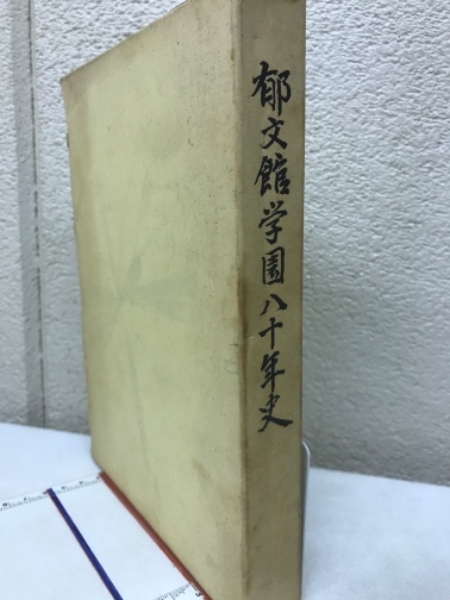 郁文館学園八十年史